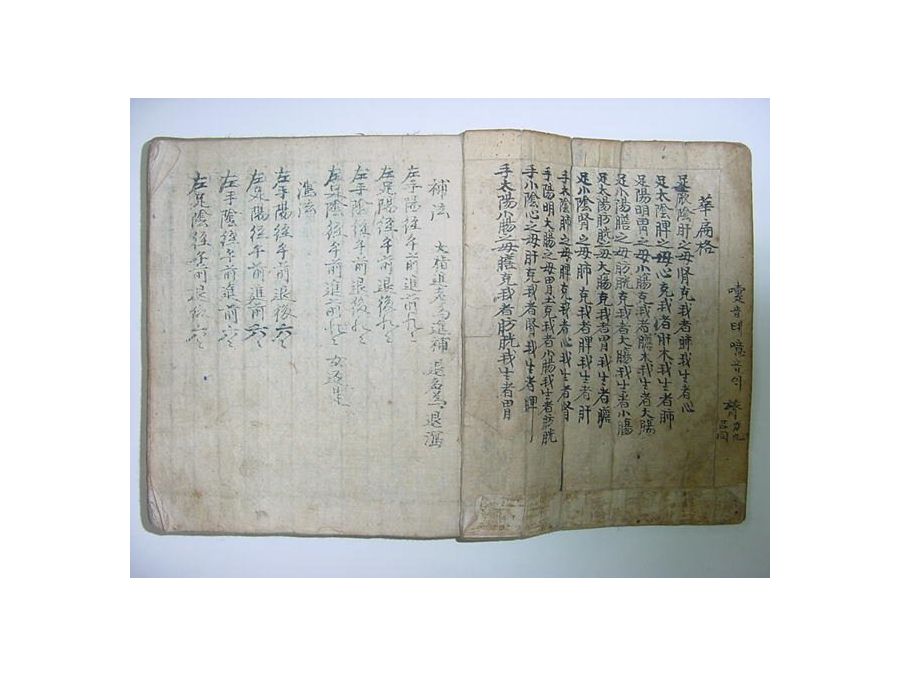 音태 噫
華扁格
足厥陰肝之母腎克我者肺我生者心
足太陰脾之母心克我者肝木我生者肺
足陽明胃之母小腸克我者膽木我生者大腸
足小陽膽之母肪胱克我者大腸我生者小腸
足太陽肪胱之母大腸克我者胃我生者膽
足小陰腎之母肺克我者脾我生者肝
手太陰肺之母脾克我者心我生者腎
手陽明大腸之母胃土克我者小腸我生者肪胱
手小陰心之母肝克我者腎我生者脾
手太陽小腸之母膽克我者肪胱我生者胃
補法 大指進者為進補 退者為退瀉
左手陽經午前進前九之
左足陽經午前退後九之
左手陰經午前退後九之
左足陰經午前進前九之 女逆是
瀉法
左手陽經午前退後六之
左足陽經午前進前六之
左手陰經午前進前六之
左足陰經午前退後六之